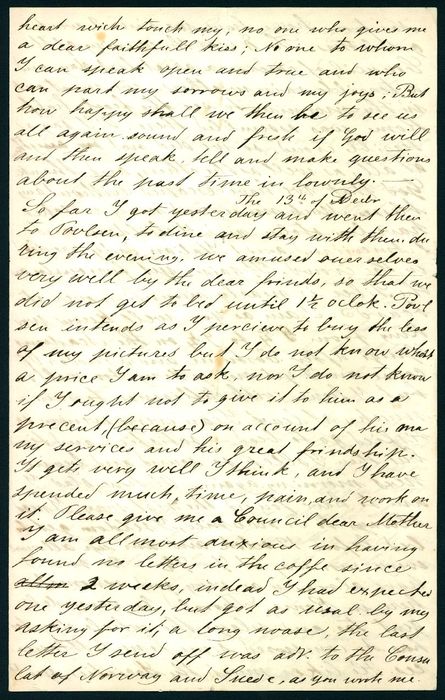 heart wich touch my, no one who gives me
a dear faithfull kiss; No one to whom
I can speak open and true and who
can part my sorrows and my joys; But
how happy shall we then be to see us
all again sound and fresh if God will
and then speak, tell and make questions
about the past time in lownly. —
The 13th of Decbr
So far I got yesterday and went then
to Povlsen, to dine and stay with them du
ring the evening. we amused ourselves
very well by the dear frinds, so that we
did not get to bed until 1½ oclok. Povl
sen intends as I percieve to buy the less
of my pictures but I do not know which
a price I am to ask, nor I do not know
if I ought not to give it to him as a
precent, (because) on account of his ma
ny services and his great frindship.
It gets very well I think, and I have
spended much, time, pain, and work on
it. Please give me a Council dear Mother
I am allmost anxious in having
found no letters in the coffe since
2 weeks, indead I had expected
one yesterday, but got as usual by my
asking for it, a long noase, the last
letter I send off was adr. to the Consu
lat of Norway and Suede, as you wrote me